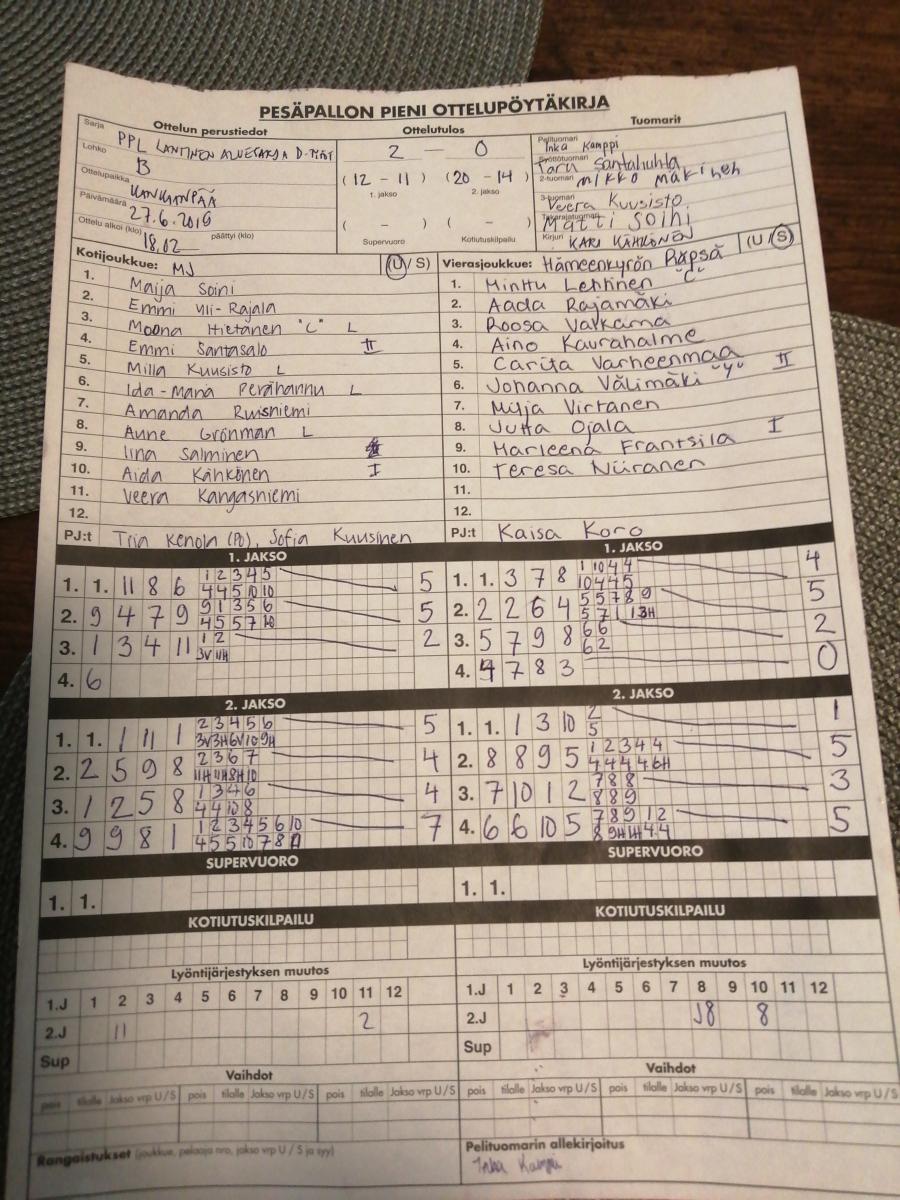 PESÄPALLON PIENI OTTELUPÖYTÄKIRJA
Ottelun perustiedot Ottelutulos Tuomarit
Sarja PPL LÄNTINEN ALUESARJA D-TYTÖT
Lohko B
Ottelupaikka KANKAANPÄÄ
Päivämäärä 27.6.2019
Ottelu alkoi (klo) 18,02 päättyi (klo)
2 — 0
(12 – 11) (20 – 14)
1. jakso 2. jakso
( – ) ( – )
Supervuoro Kotiutuskilpailu
Pelituomari Inka Kamppi
Syöttötuomari Taru Santahuhta
2-tuomari Mikko Mäkinen
3-tuomari Veera Kuusisto
Takarajatuomari Matti Soini
Kirjuri KARI KÄHKÖNEN
Kotijoukkue: MJ (U/S)
1. Maija Soini
2. Emmi Yli-Rajala
3. Moona Hietanen "C" L
4. Emmi Santasalo II
5. Milla Kuusisto L
6. Ida-Maria Perähannu L
7. Amanda Ruisniemi
8. Aune Grönman L
9. Iina Salminen
10. Aida Kähkönen I
11. Veera Kangasniemi
12.
PJ:t Tiia Kenola (PJ), Sofia Kuusinen
Vierasjoukkue: Hämeenkyrön (U/S)
1. Minttu Lehtinen "C"
2. Aada Rajamäki
3. Roosa Valkama
4. Aino Kaurahalme
5. Carita Varheenmaa II
6. Johanna Välimäki "y"
7. Milja Virtanen
8. Jutta Ojala I
9. Marleena Frantsila
10. Teresa Niiranen
11.
12.
PJ:t Kaisa Koro
1. JAKSO
1. 1. 11 8 6 1 2 3 4 5 5
4 4 5 10 10
2. 9 4 7 9 91 3 5 6 5
4 5 5 7 10
3. 1 3 4 11 1 2 2
3V 11H
4. 6
1. JAKSO
1. 1. 3 7 8 1 10 4 4 4
10 4 4 5
2. 2 2 6 4 5 5 7 8 9 5
5 7 1 1 3H
3. 5 7 9 8 6 6 2
6 2
4. 4 7 8 3 0
2. JAKSO
1. 1. 1 11 1 2 3 4 5 6 5
3V 3H 6V 10 9H
2. 2 5 9 8 2 3 6 7 4
11H 11H 8H 10
3. 1 2 5 8 1 3 4 6 4
4 4 10 8
4. 9 9 8 1 1 2 3 4 5 6 10 7
4 5 5 10 7 8
2. JAKSO
1. 1. 1 3 10 2 1
5
2. 8 8 9 5 1 2 3 4 4 5
4 4 4 4 6H
3. 7 10 1 2 7 8 8 3
8 8 9
4. 6 6 10 5 7 8 9 1 2 5
8 9H 1H 4 4
SUPERVUORO
1. 1.
SUPERVUORO
1. 1.
KOTIUTUSKILPAILU
KOTIUTUSKILPAILU
Lyöntijärjestyksen muutos
1.J 1 2 3 4 5 6 7 8 9 10 11 12
2.J 11 2
Sup
Lyöntijärjestyksen muutos
1.J 1 2 3 4 5 6 7 8 9 10 11 12
2.J 8 8
Sup
Vaihdot
pois tilalle Jakso vrp U/S pois tilalle Jakso vrp U/S pois tilalle Jakso vrp U/S
Vaihdot
pois tilalle Jakso vrp U/S pois tilalle Jakso vrp U/S pois tilalle Jakso vrp U/S
Rangaistukset (joukkue, pelaaja nro, jakso vrp U / S ja syy)
Pelituomarin allekirjoitus
Inka Kamppi